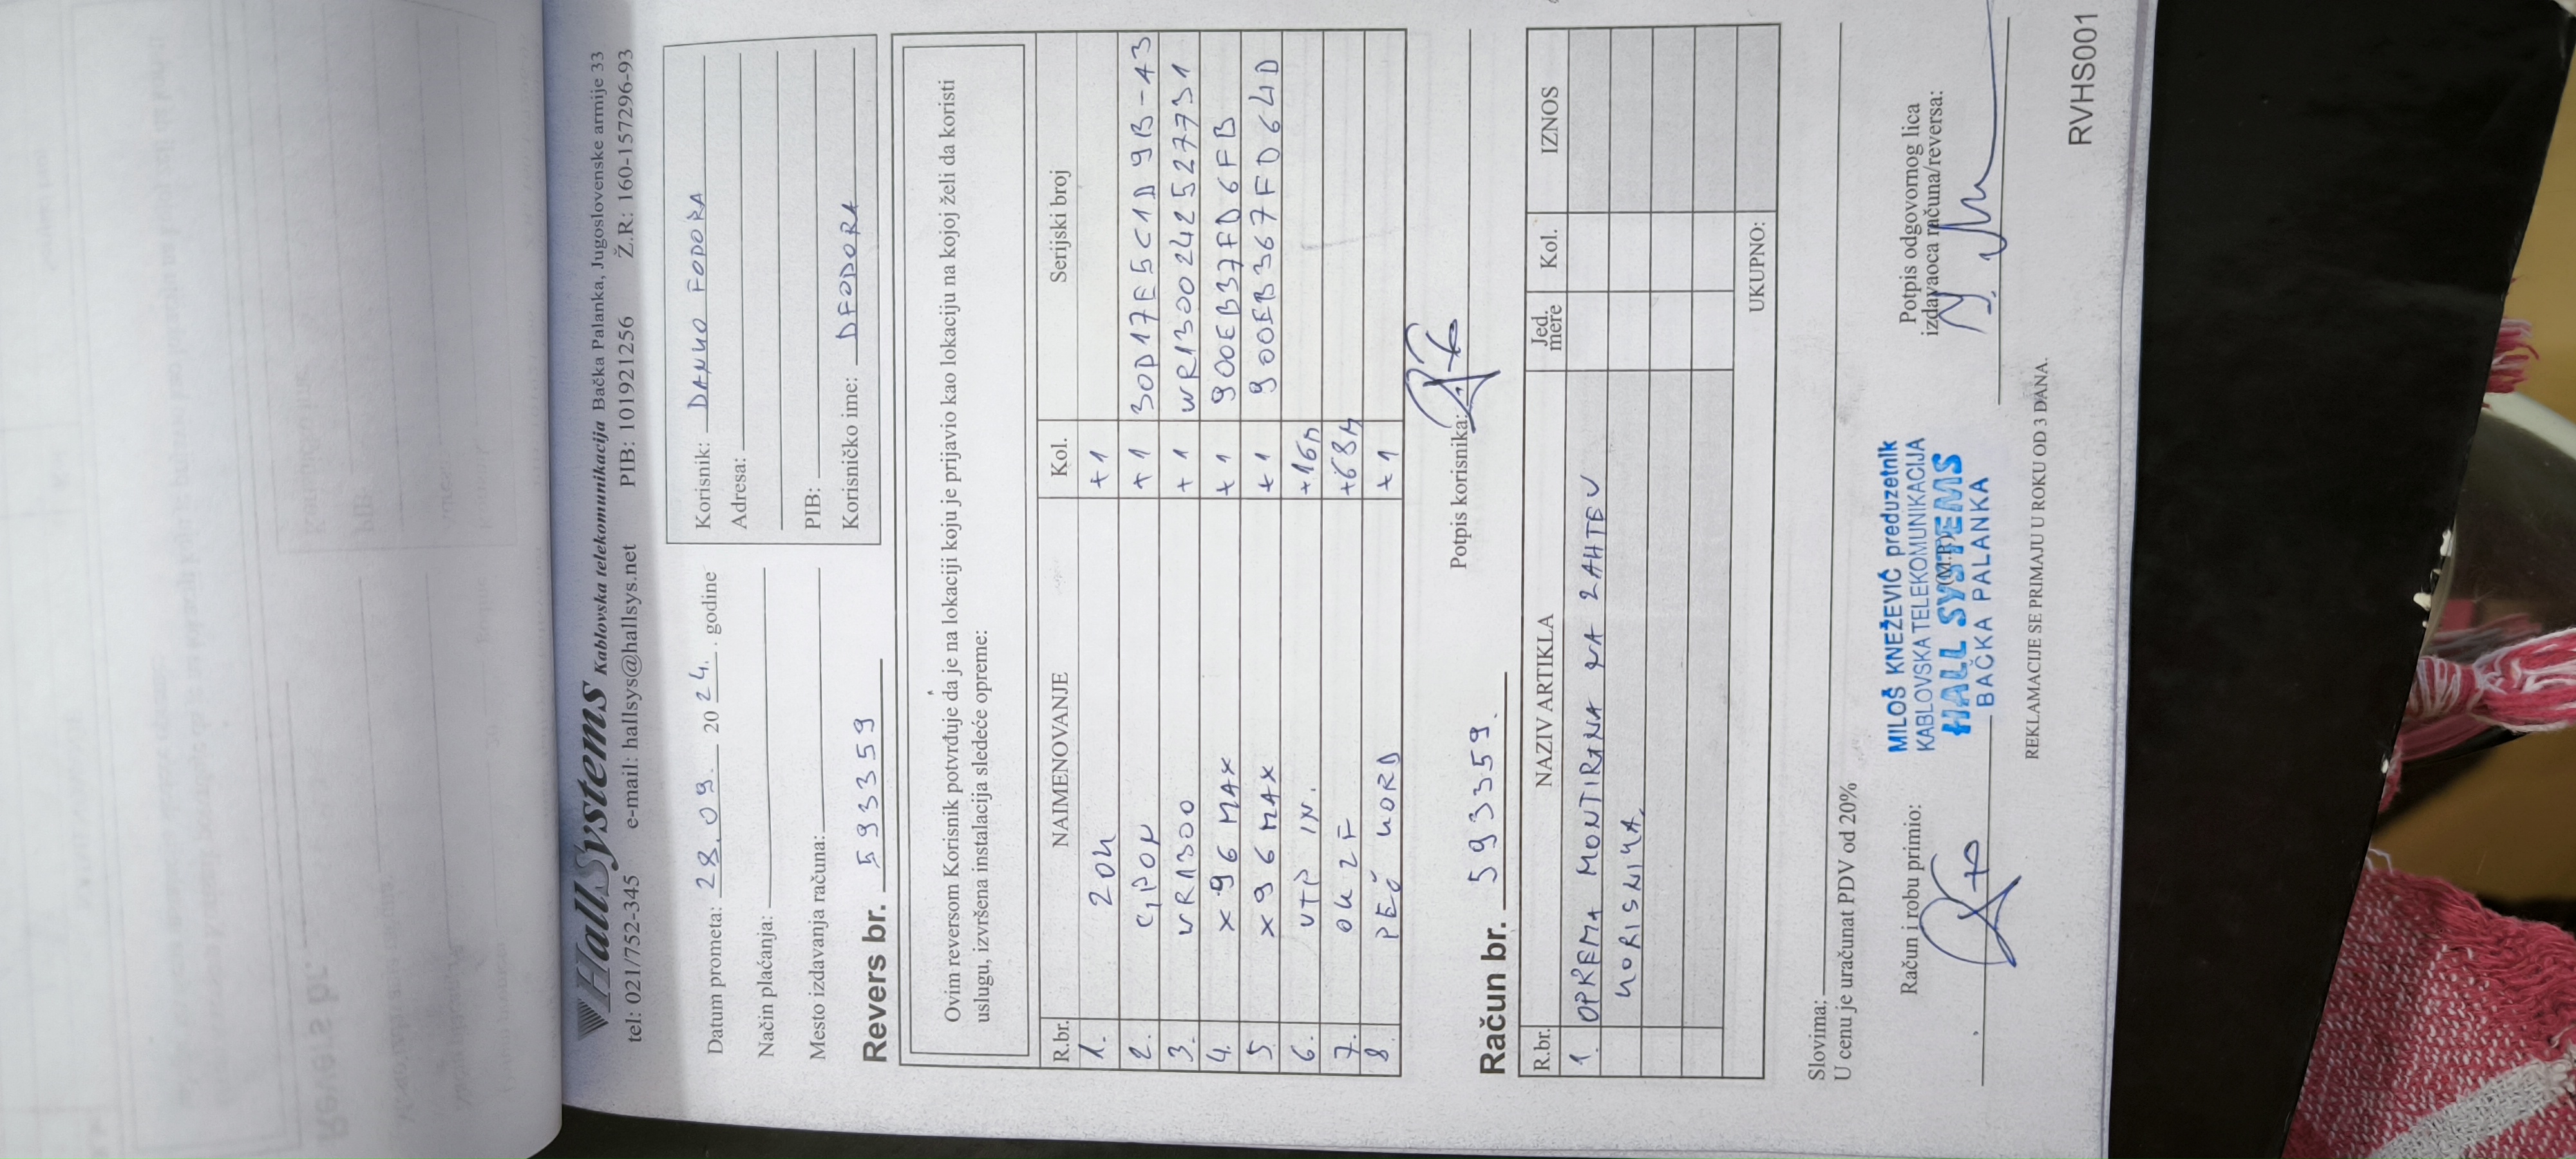 HallSystems Kablovska telekomunikacija Bačka Palanka, Jugoslovenske armije 33
tel: 021/752-345 e-mail: hallsys@hallsys.net PIB: 101921256 Ž.R: 160-157296-93
Datum prometa: 28. 09. 2024. godine
Način plaćanja:
Mesto izdavanja računa:
Korisnik: DANKO FODORA
Adresa:
PIB:
Korisničko ime: DFODORA
Revers br. 593359
Ovim reversom Korisnik potvrđuje da je na lokaciji koju je prijavio kao lokaciju na kojoj želi da koristi
uslugu, izvršena instalacija sledeće opreme:
R.br. NAIMENOVANJE Kol. Serijski broj
1. ZOK +1
2. GPON +1 30D17E5C1D9B-43
3. WR1300 +1 WR13002425277731
4. X96 MAX +1 900EB37FD6FB
5 X96 MAX +1 900EB367FD64D
6. UTP IN. +16m
7. OK 2F +68m
8. PEČ KORD +1
Potpis korisnika:
Račun br. 593359.
R.br. NAZIV ARTIKLA Jed. mere Kol. IZNOS
1. OPREMA MONTIRANA NA ZAHTEV
KORISNIKA
UKUPNO:
Slovima:
U cenu je uračunat PDV od 20%
Račun i robu primio:
MILOŠ KNEŽEVIĆ preduzetnik
KABLOVSKA TELEKOMUNIKACIJA
HALL SYSTEMS
BAČKA PALANKA
Potpis odgovornog lica
izdavaoca računa/reversa:
REKLAMACIJE SE PRIMAJU U ROKU OD 3 DANA.
RVHS001